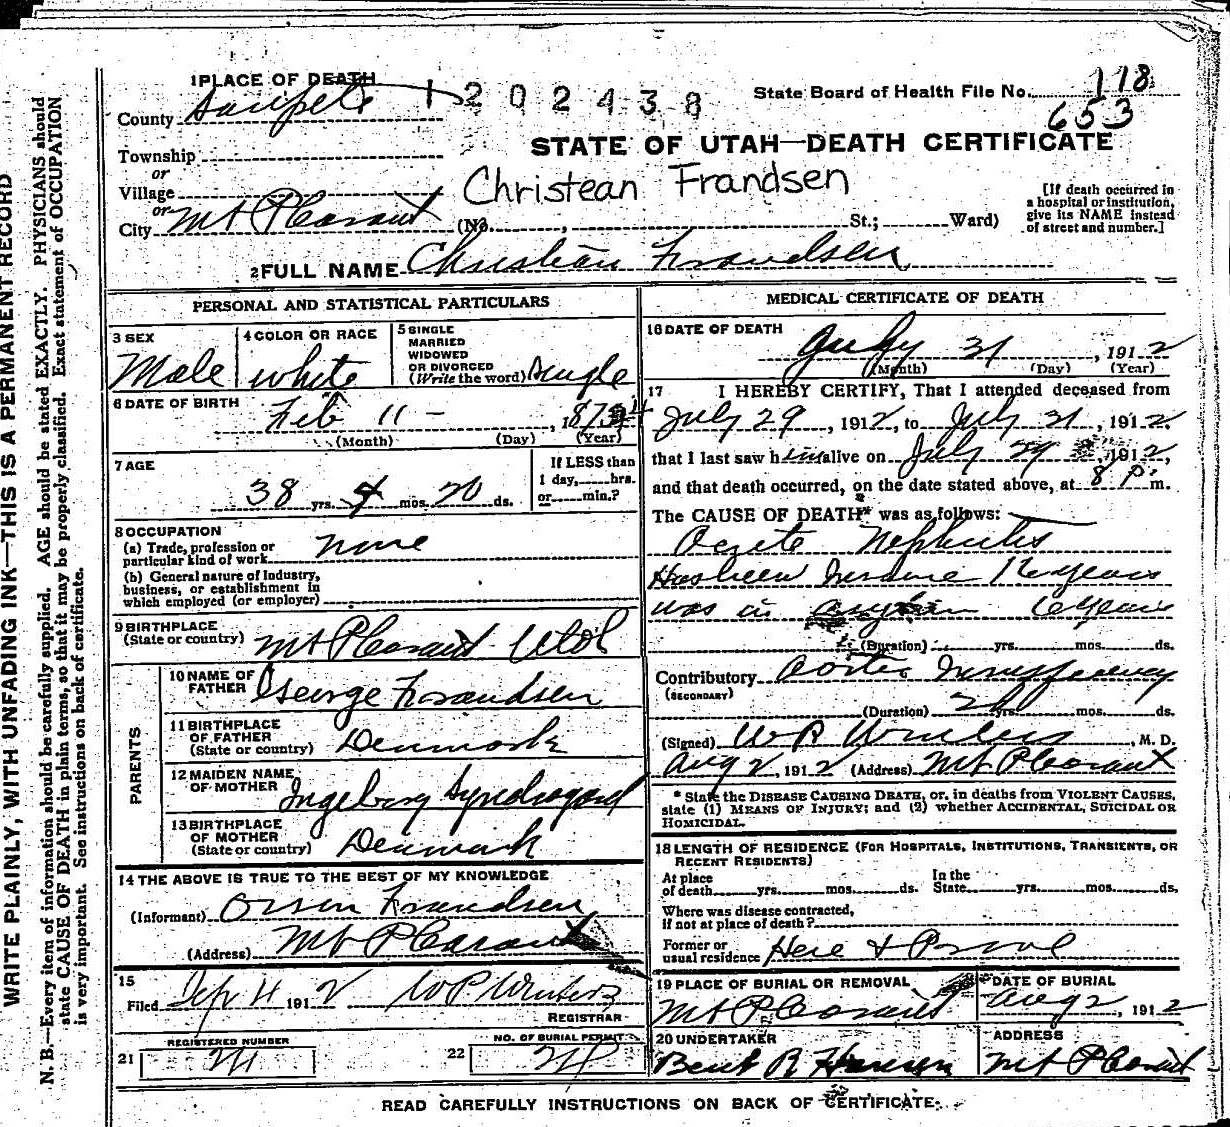 WRITE PLAINLY, WITH UNFADING INK—THIS IS A PERMANENT RECORD
N. B.—Every item of information should be carefully supplied. AGE should be stated EXACTLY. PHYSICIANS should
state CAUSE OF DEATH in plain terms, so that it may be properly classified. Exact statement of OCCUPATION
is very important. See instructions on back of certificate.
1 PLACE OF DEATH
1202438
State Board of Health File No. 118
653
County Sanpete
STATE OF UTAH—DEATH CERTIFICATE
Township
or
Village
Christean Frandsen
or
City Mt Pleasant (No. , St.; Ward)
[If death occurred in
a hospital or institution,
give its NAME instead
of street and number.]
2 FULL NAME Christian Frandsen
PERSONAL AND STATISTICAL PARTICULARS
3 SEX
Male
4 COLOR OR RACE
white
5 SINGLE
MARRIED
WIDOWED
OR DIVORCED
(Write the word) Single
6 DATE OF BIRTH
Feb 11 – , 1874
(Month) (Day) (Year)
7 AGE
38 yrs. mos. 20 ds.
If LESS than
1 day, hrs.
or min.?
8 OCCUPATION
(a) Trade, profession or
particular kind of work none
(b) General nature of industry,
business, or establishment in
which employed (or employer)
9 BIRTHPLACE
(State or country) Mt Pleasant Utah
PARENTS
10 NAME OF
FATHER George Frandsen
11 BIRTHPLACE
OF FATHER
(State or country) Denmark
12 MAIDEN NAME
OF MOTHER Ingeborg
13 BIRTHPLACE
OF MOTHER
(State or country) Denmark
14 THE ABOVE IS TRUE TO THE BEST OF MY KNOWLEDGE
(Informant) Orson Frandsen
(Address) Mt Pleasant
15
Filed Sep 4 1912 W P Winters
REGISTRAR
21
REGISTERED NUMBER
22
NO. OF BURIAL PERMIT
MEDICAL CERTIFICATE OF DEATH
16 DATE OF DEATH
July 31 , 1912
(Month) (Day) (Year)
17 I HEREBY CERTIFY, That I attended deceased from
July 29 , 1912, to July 31 , 1912
that I last saw him alive on July 29 , 1912,
and that death occurred, on the date stated above, at 8 P. m.
The CAUSE OF DEATH* was as follows:
Acute Nephritis
Has been Insane 16 years
was in asylum 6 years
(Duration) yrs. mos. ds.
Contributory Aortic Insufficiency
(SECONDARY)
(Duration) yrs. mos. ds.
(Signed) W P Winters , M. D.
Aug 2, 1912 (Address) Mt Pleasant
* State the DISEASE CAUSING DEATH, or, in deaths from VIOLENT CAUSES,
state (1) MEANS OF INJURY; and (2) whether ACCIDENTAL, SUICIDAL OR
HOMICIDAL.
18 LENGTH OF RESIDENCE (FOR HOSPITALS, INSTITUTIONS, TRANSIENTS, OR
RECENT RESIDENTS)
At place
of death yrs. mos. ds.
In the
State yrs. mos. ds.
Where was disease contracted,
if not at place of death?
Former or
usual residence Here & Provo
19 PLACE OF BURIAL OR REMOVAL
Mt Pleasant
DATE OF BURIAL
Aug 2 , 1912
20 UNDERTAKER
Bent R Hansen
ADDRESS
Mt Pleasant
READ CAREFULLY INSTRUCTIONS ON BACK OF CERTIFICATE.